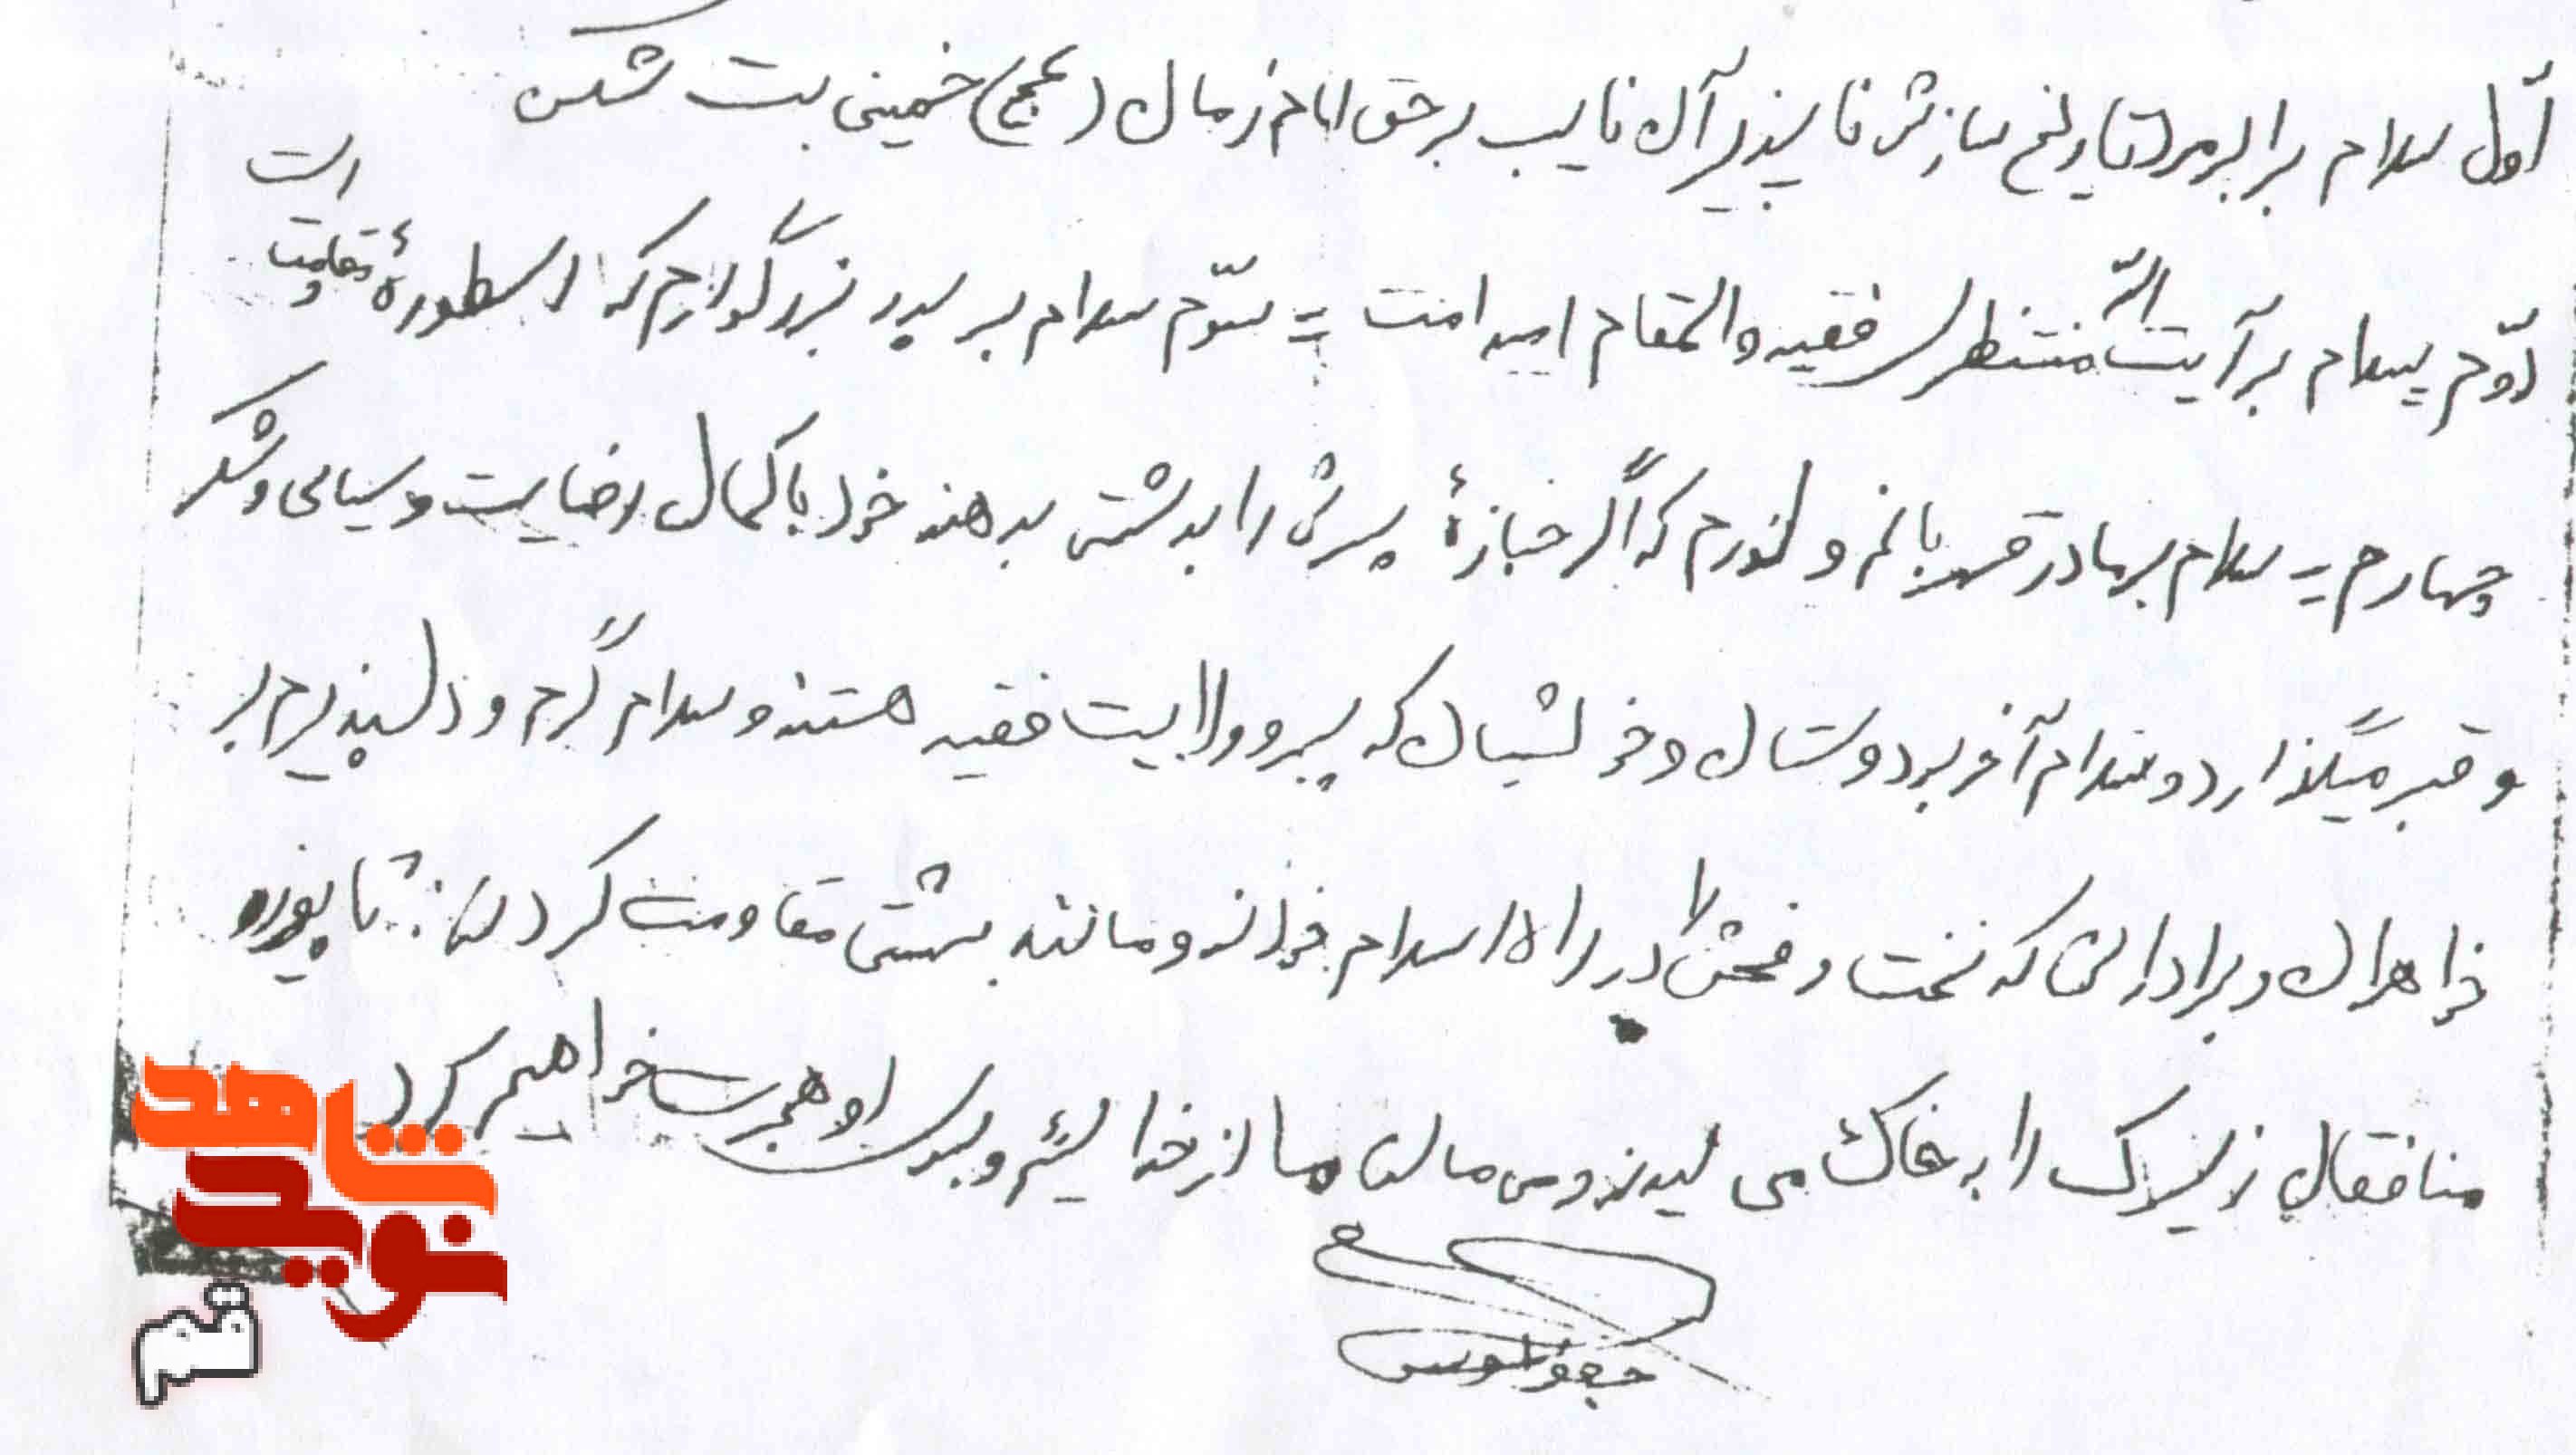 اوّل سلام برابر مرد تاریخ سازش ناپذیر آن نایب بر حق امام زمان (عج) خمینی بت شکن
دوّم سلام بر آیت الله منتظری فقیه والمقام امید امت = سوّم سلام بر پدر بزرگوارم که اسطورهٔ مقاومت است
چهارم = سلام بر مادر قهرمانم و دلورم که اگر جنازهٔ پسرش را بدستش بدهند خود با کمال رضایت و سپاس و شکر
و قبر میگذارد و سلام آخر بر دوستان و خویشان که پیرو ولایت فقیه هستند و سلام گرم و دلپذیرم بر
خواهران و برادرانی که در راه اسلام و مانند بهشتی مقاومت کردن تا پوزه
منافقان زیرک را به خاک می ما از خدائیم و بسوی او هجرت خواهیم کرد
جعفر
شاهد
نوید
قم